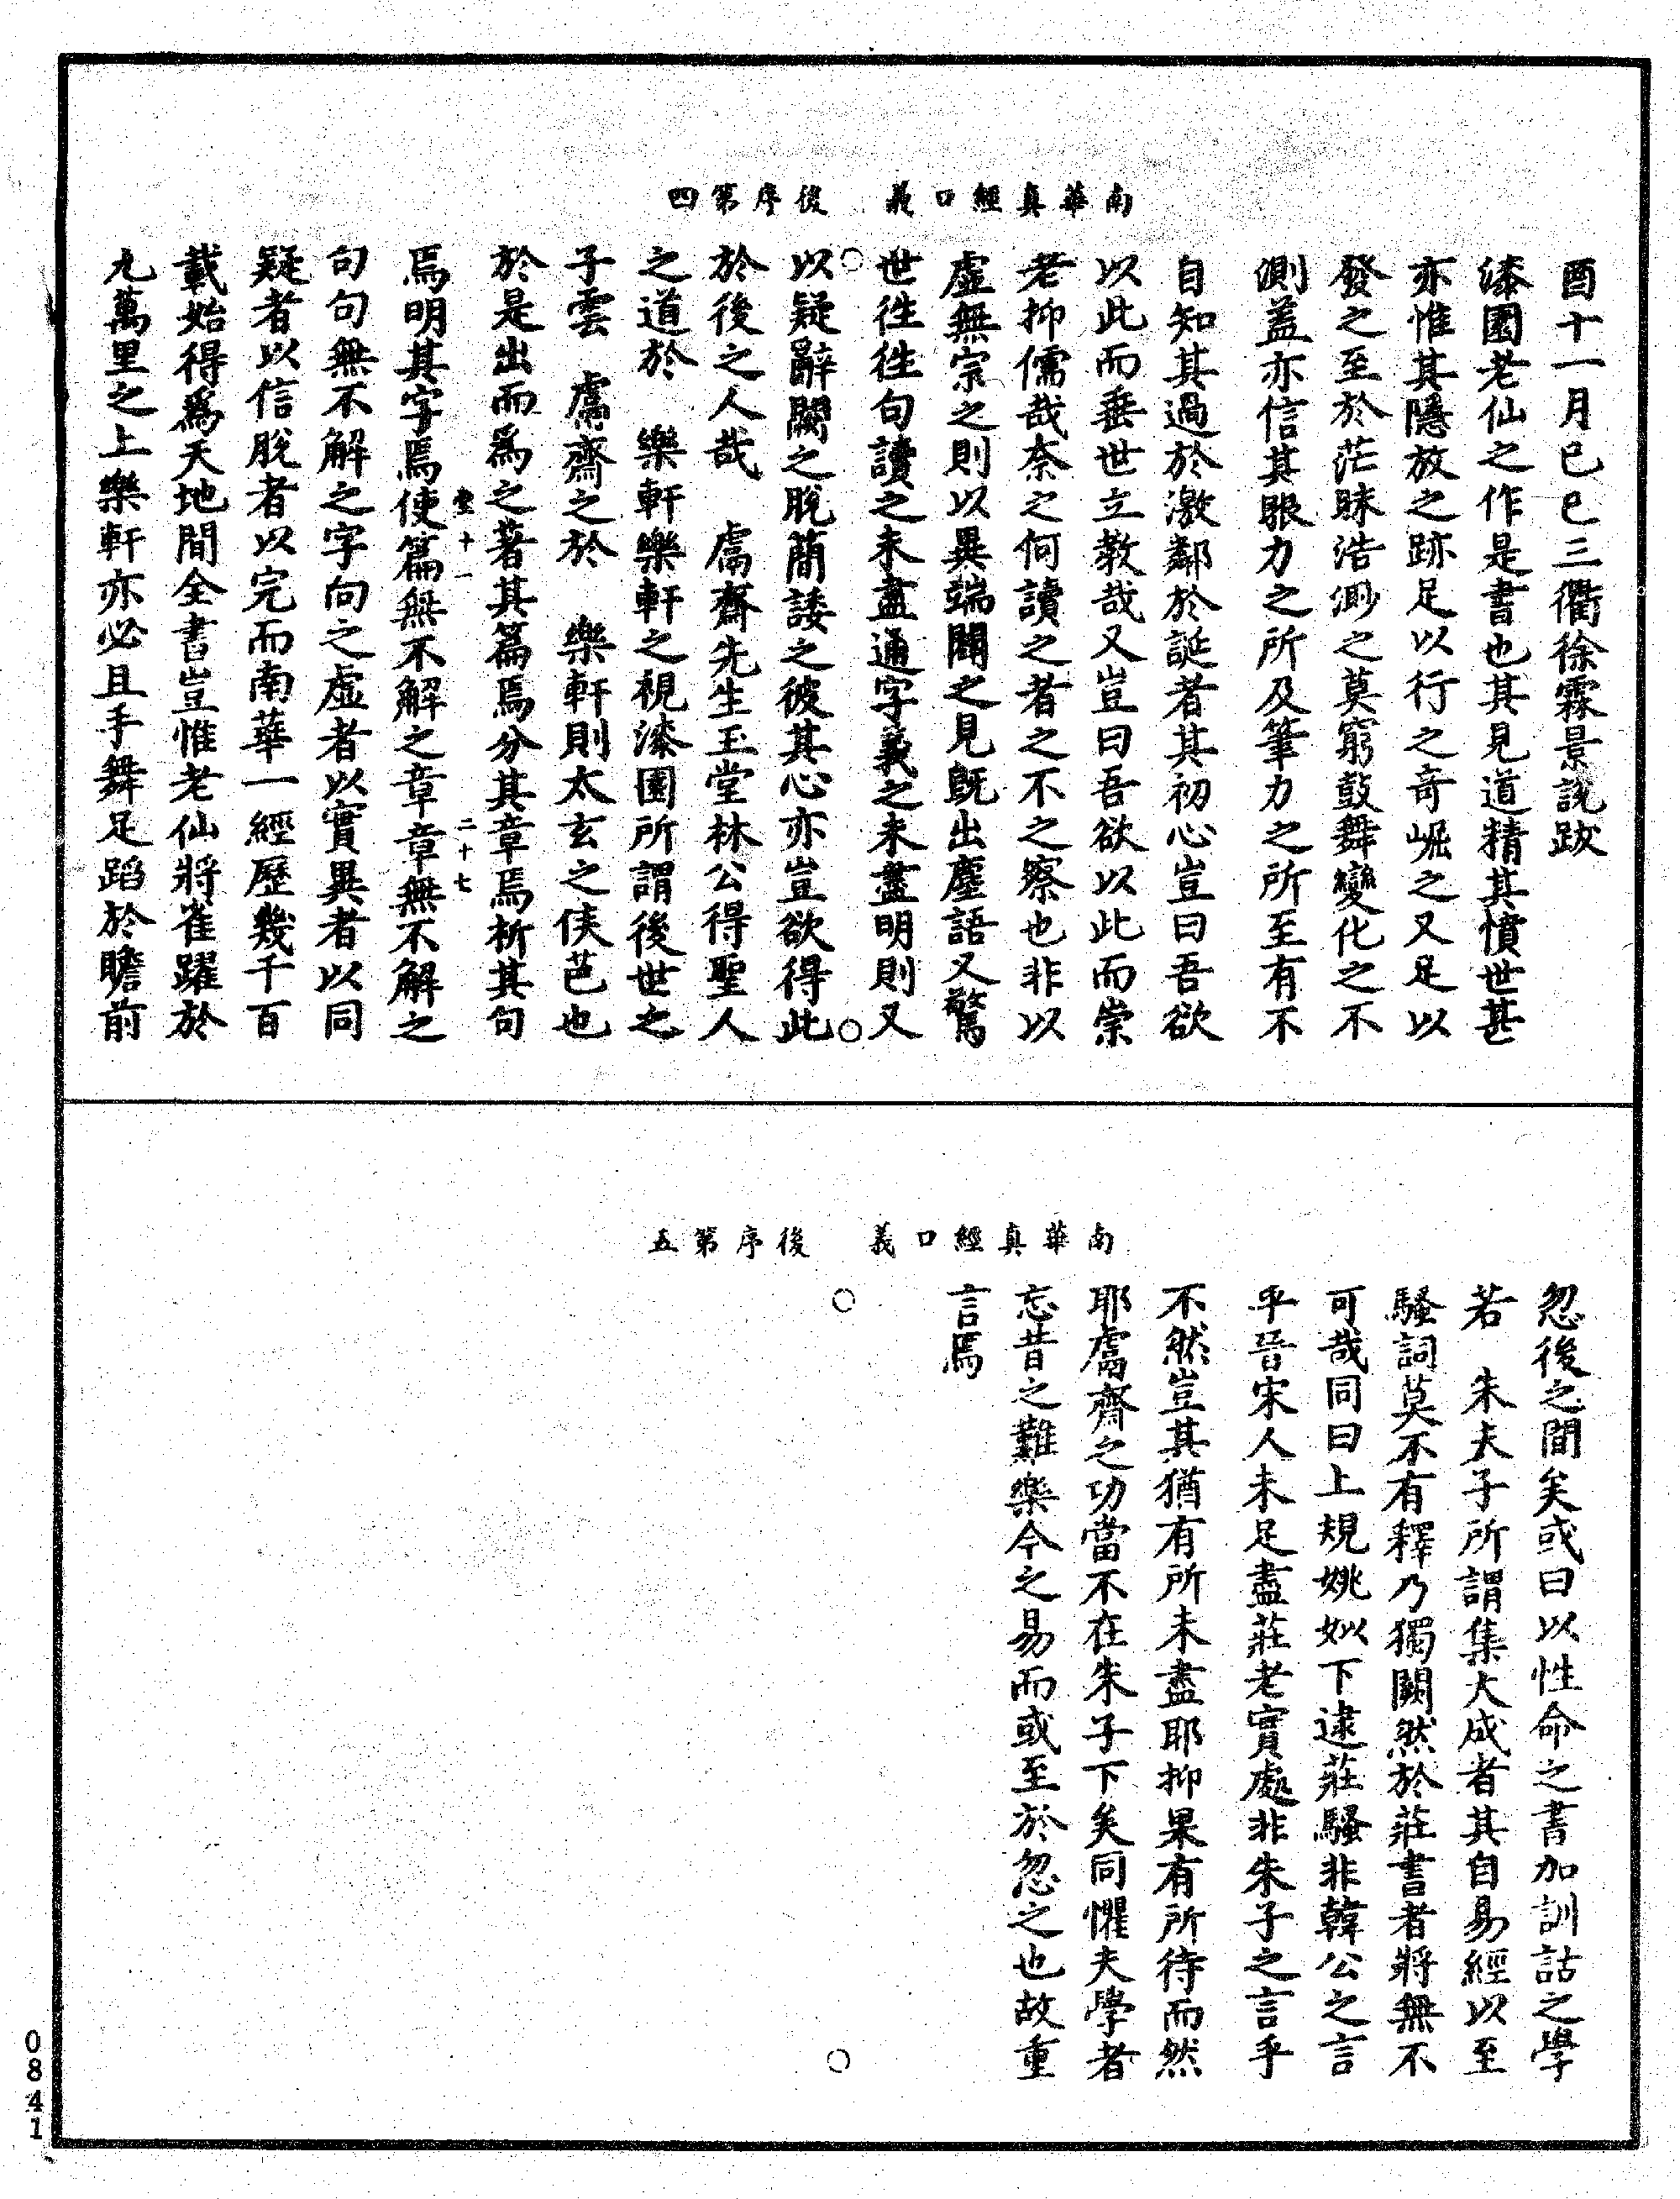 南華真經口義　後序第四
酉十一月己巳三衢徐霖景說跋
漆園老仙之作是書也其見道精其憤世甚
亦惟其隱放之跡足以行之奇崛之又足以
發之至於茫昧浩渺之莫窮鼓舞變化之不
測蓋亦信其眼力之所及筆力之所至有不
自知其過於激鄰於誕者其初心豈曰吾欲
以此而垂世立教哉又豈曰吾欲以此而崇
老抑儒哉奈之何讀之者之不之察也非以
虛無宗之則以異端闢之見既出塵語又驚
世徃徃句讀之未盡通字義之未盡明則又
以疑辭闕之脫簡諉之彼其心亦豈欲得此
於後之人哉　鬳齋先生玉堂林公得聖人
之道於　樂軒樂軒之視漆園所謂後世之
子雲　鬳齋之於　樂軒則太玄之侯芭也
於是出而爲之著其篇焉分其章焉析其句
十一　二十七
焉明其字焉使篇無不解之章章無不解之
句句無不解之字向之虛者以實異者以同
疑者以信脫者以完而南華一經歷幾千百
載始得爲天地間全書豈惟老仙將雀躍於
九萬里之上樂軒亦必且手舞足蹈於瞻前
南華真經口義　後序第五
忽後之間矣或曰以性命之書加訓詁之學
若　朱夫子所謂集大成者其自易經以至
騷詞莫不有釋乃獨闕然於莊書者將無不
可哉同曰上規姚姒下逮莊騷非韓公之言
乎晉宋人未足盡莊老實處非朱子之言乎
不然豈其猶有所未盡耶抑果有所待而然
耶鬳齋之功當不在朱子下矣同懼夫學者
忘昔之難樂今之易而或至於忽之也故重
言焉
0841